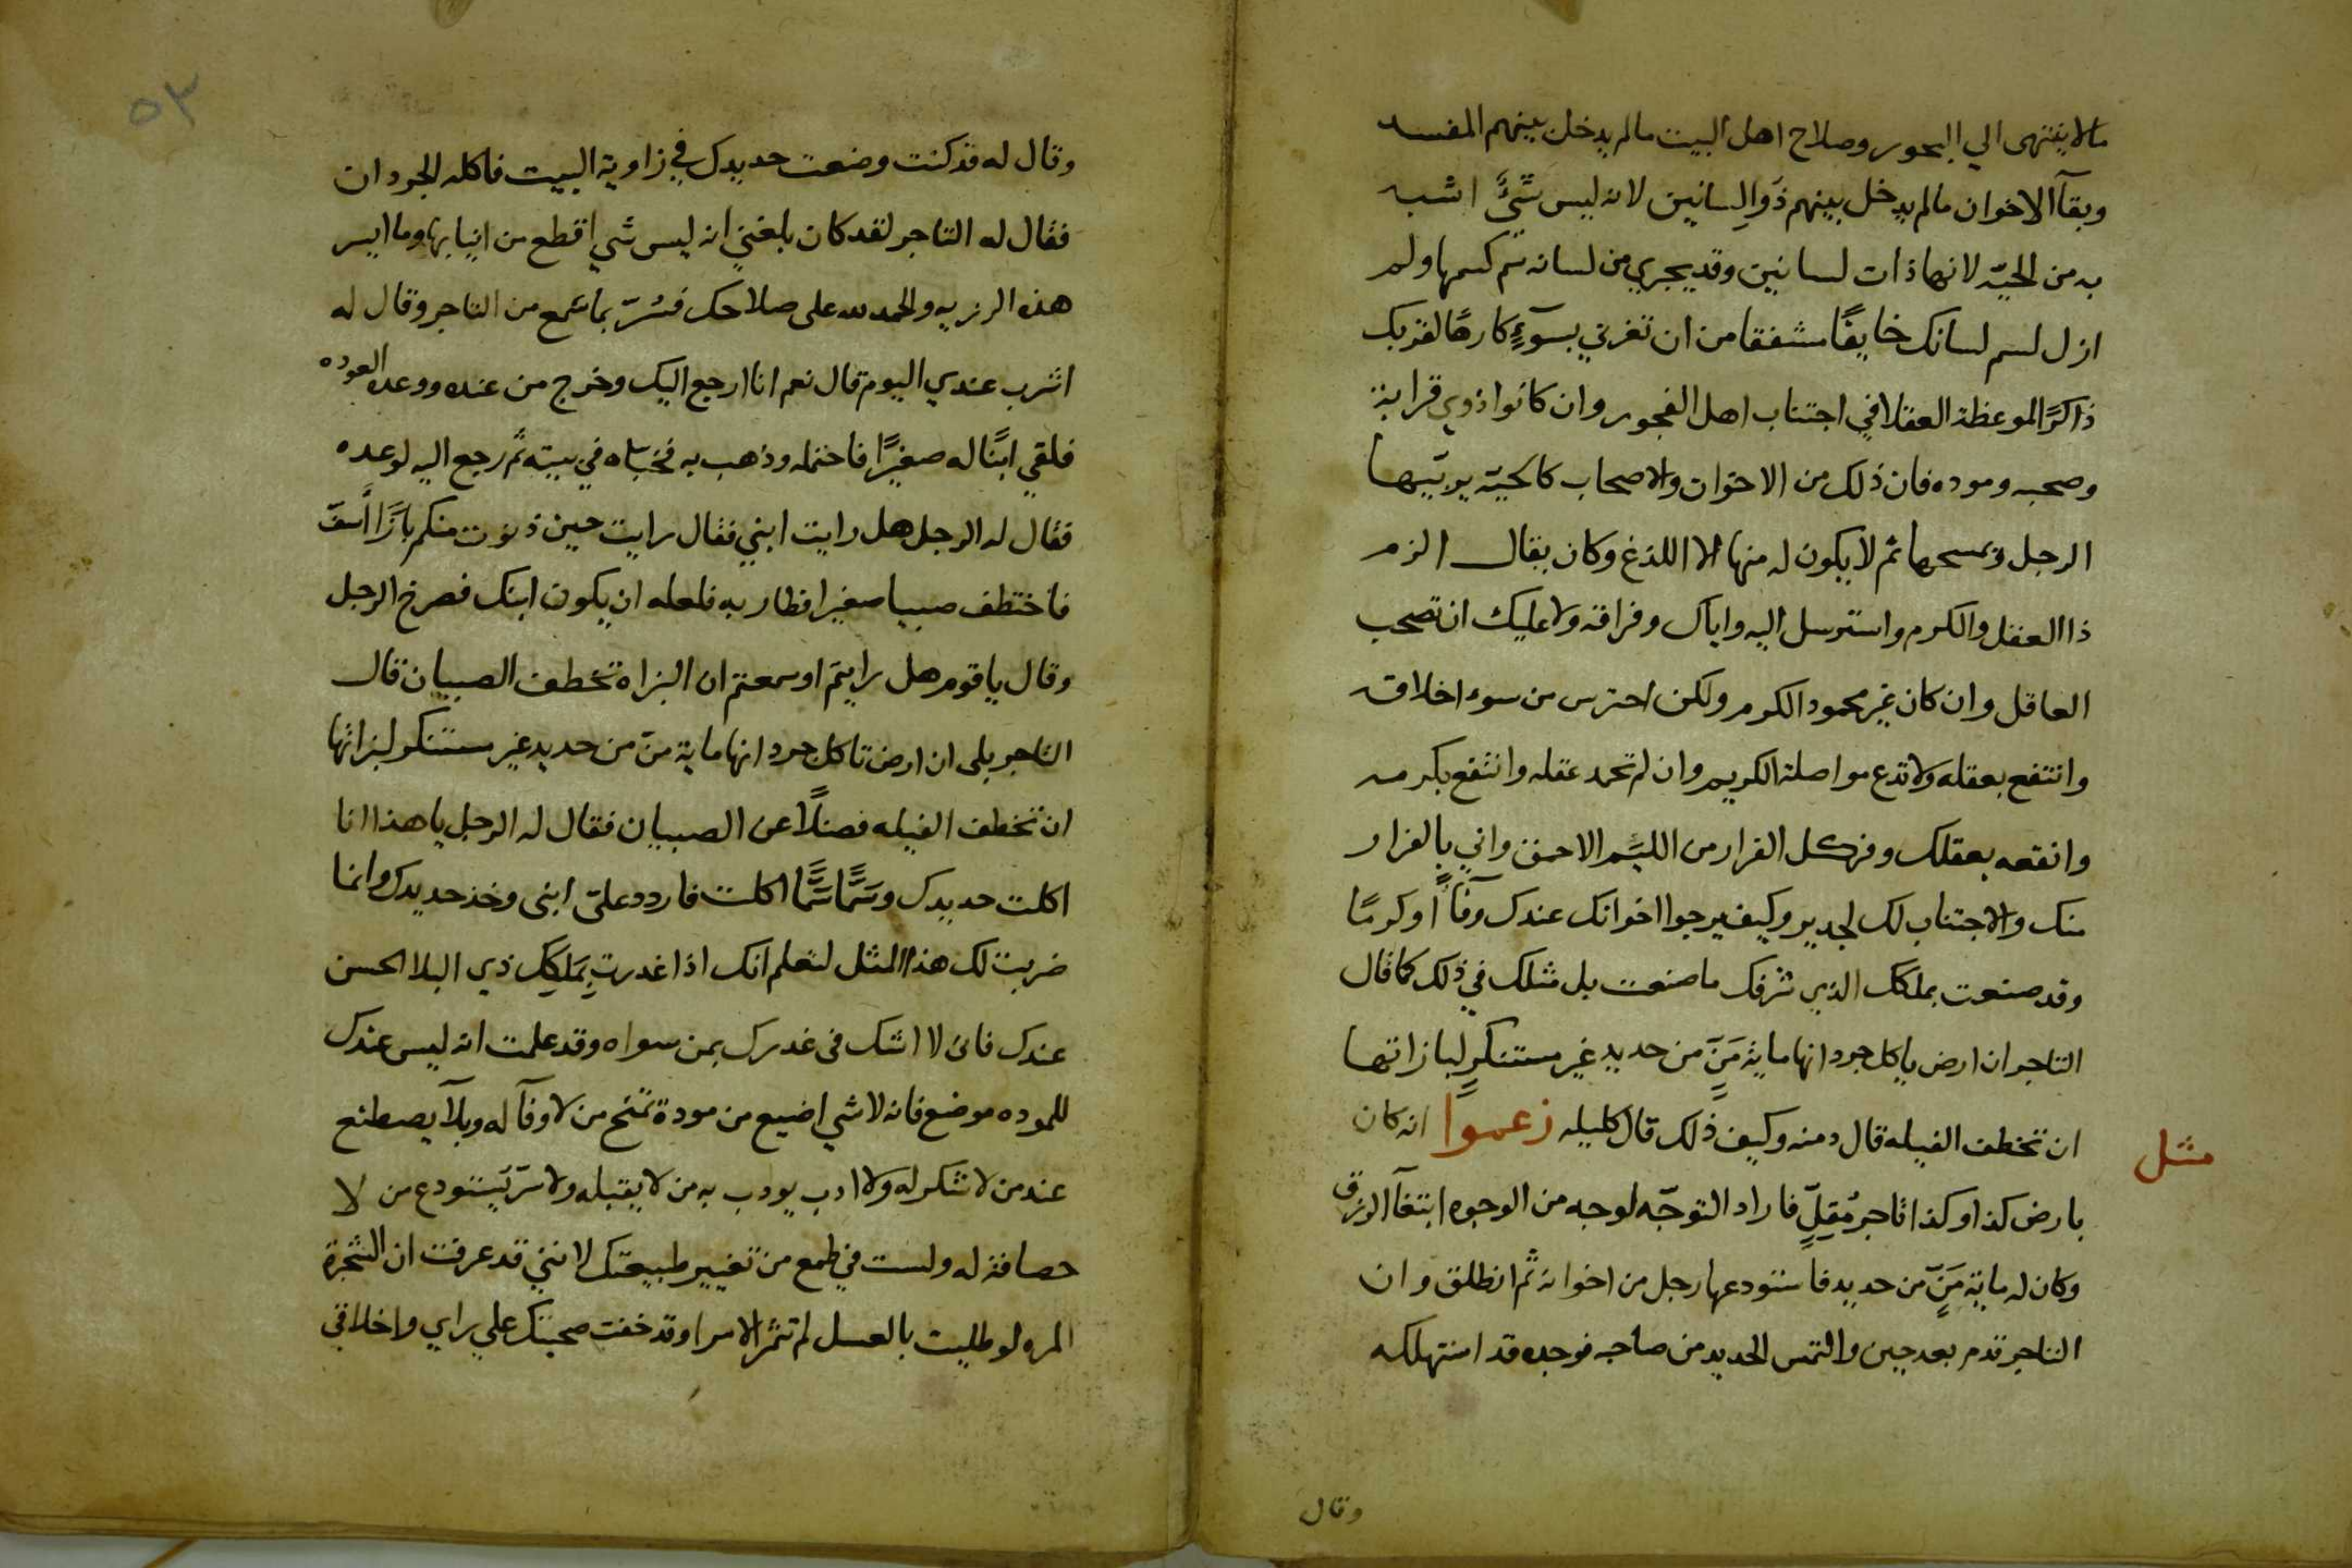 مالا ينتهى الي البحور وصلاح اهل البيت مالم يدخل بينهم المفسد
وبقآ الاخوان مالم يدخل بينهم ذوالِسانين لانه ليس شئ اشبه
به من الحيّه لانها ذات لسانين وقد يجري من لسانه سم كسمها ولم
ازل لسم لسانك خايفًا مشفقا من ان تغرني بسوءٍ كارهًا لقربك
ذاكرًا لموعظة العقلا في اجتناب اهل الفجور وان كانوا ذوي قرابة
وصحبه وموده فان ذلك من الاخوان والاصحاب كالحيّه يربّيها
الرجل ويمسحها ثم لا يكون له منها الا اللذغ وكان يقال الزم
ذا العقل والكرم واسترسل اليه واياك وفراقه ولا عليك ان تصحب
العاقل وان كان غير محمود الكرم ولكن احترس من سوء اخلاقه
وانتفع بعقله ولا تدع مواصلة الكريم وان لم تحمد عقله وانتفع بكرمه
وانفعه بعقلك وفر كل الفرار من اللئيم الاحمق واني بالفرار
منك والاجتناب لك لجدير وكيف يرجوا اخوانك عندك وفآأ وكرمًا
وقد صنعت بملكك الذي شرفك ما صنعت بل مثلك في ذلك كما قال
التاجر ان ارض ياكل جردانها ماية مَنٍّ من حديد غير مستنكرٍ لبازاتها
ان تخطف الفيله قال دمنه وكيف ذلك قال كليله زعموا انه كان
مثل
بارض كذا وكذا تاجر مُقِلّ فاراد التوجّه لوجه من الوجوه ابتغآ الرزق
وكان له ماية مَنٍّ من حديد فاستودعها رجل من اخوانه ثم انطلق وان
التاجر قدم بعد حين والتمس الحديد من صاحبه فوجده قد استهلكه
وقال
٥٣
وقال له قد كنت وضعت حديدك في زاوية البيت فاكله الجردان
فقال له التاجر لقد كان بلغني انه ليس شي اقطع من انيابها وما ايسر
هذه الرزيه والحمد لله على صلاحك فسُرّ بما سمع من التاجر وقال له
اشرب عندي اليوم قال نعم انا ارجع اليك وخرج من عنده ووعده العوده
فلقي ابنًا له صغيرًا فاحتمله وذهب به فخباه في بيته ثم رجع اليه لوعده
فقال له الرجل هل رايت ابني فقال رايت حين دنوت منكم بازًا أسفّ
فاختطف صبيا صغيرا فطار به فلعله ان يكون ابنك فصرخ الرجل
وقال يا قوم هل رايتم او سمعتم ان البزاه تخطف الصبيان قال
التاجر بلى ان ارض تاكل جردانها ماية منّ من حديد غير مستنكر لبزاتها
ان تخطف الفيله فضلًا عن الصبيان فقال له الرجل يا هذا انا
اكلت حديدك وسَمًّا سَمًّا اكلت فاردد علىّ ابنى وخذ حديدك وانما
ضربت لك هذا المثل لتعلم انك اذا غدرت بِمَلِكِكَ ذي البلا الحسن
عندك فانى لا اشك فى غدرك بمن سواه وقد علمت انه ليس عندك
للموده موضع فانه لا شي اضيع من مودة تمنح من لا وفآ له وبلآ يصطنع
عند من لا شكر له ولا ادب يودب به من لا يقبله ولا سرّ يَستودع من لا
حصافة له ولست في طمع من تغيير طبيعتك لانني قد عرفت ان الشجرة
المره لو طليت بالعسل لم تثمر الا مرا وقد خفت صحبتك علي رايي واخلاقي